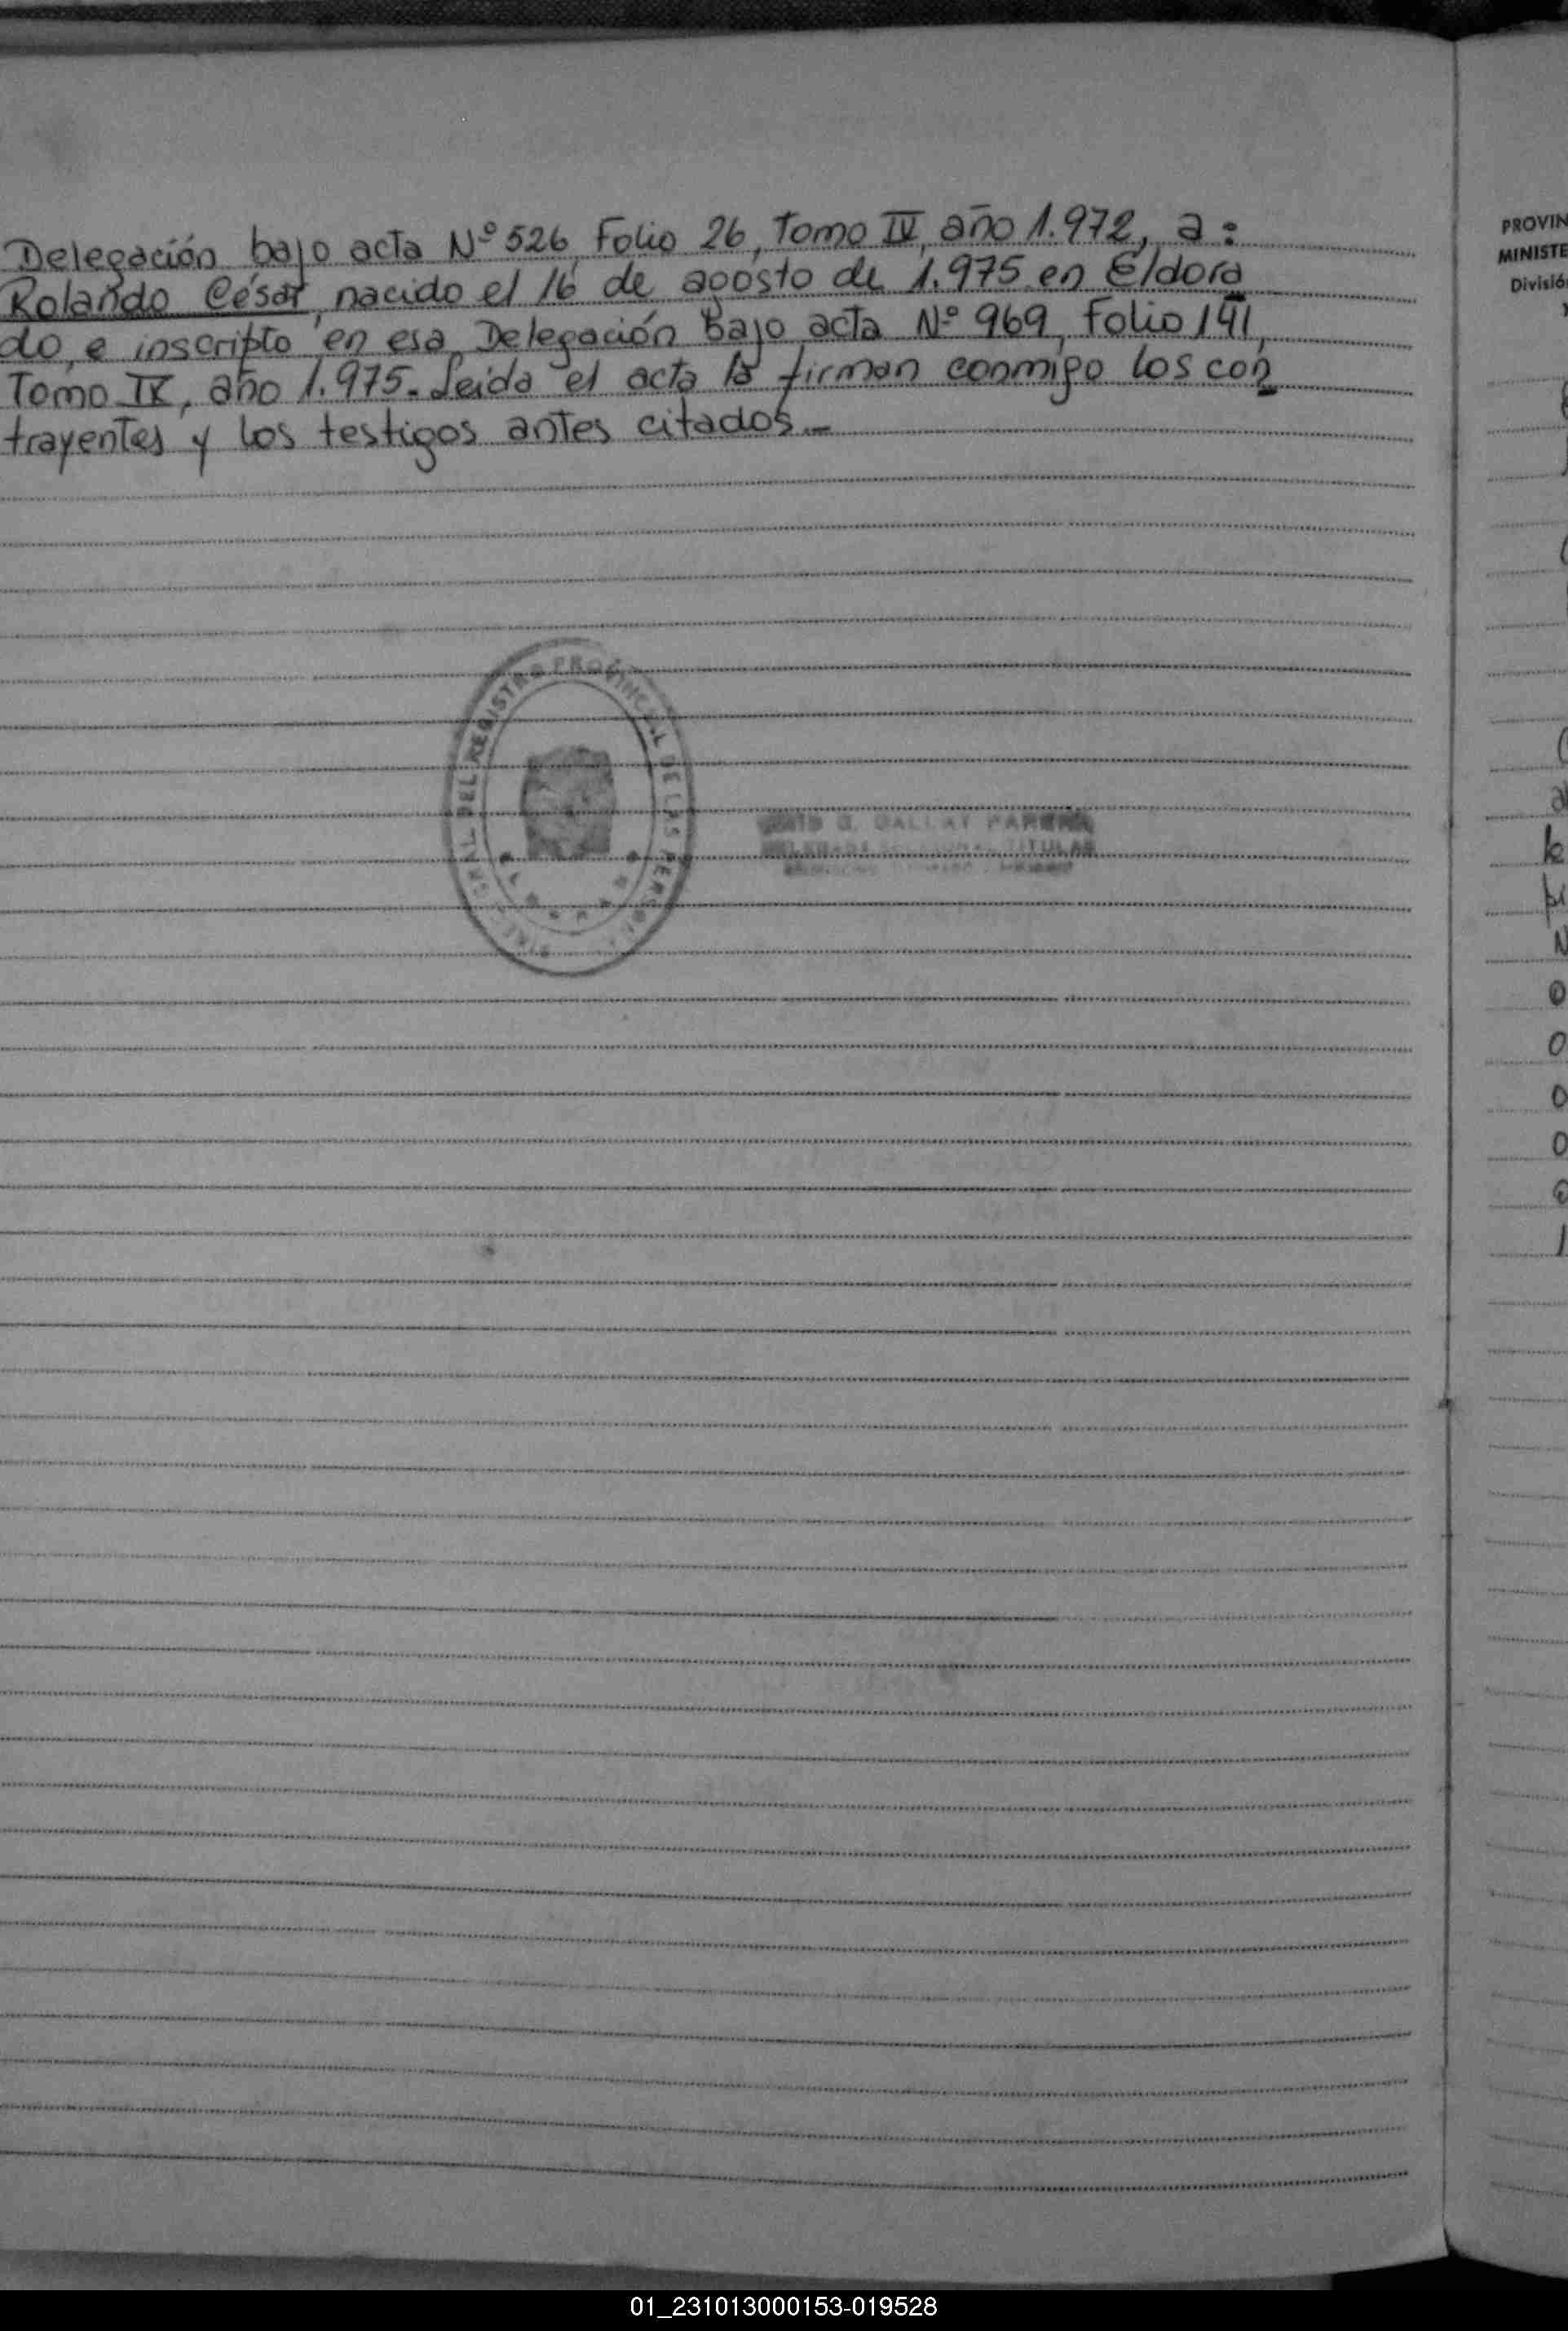 Delegación bajo acta Nº 526, Folio 26, Tomo IV, año 1.972, a:
Rolando César, nacido el 16 de agosto de 1.975 en Eldora
do, e inscripto en esa Delegación bajo acta Nº 969, Folio 141,
Tomo IX, año 1.975. Leída el acta la firman conmigo los con
trayentes y los testigos antes citados.-
DEL REGISTRO PROVINCIAL DE LAS PERSONAS
G. GALLAT PARERA
TITULAR
PROVIN
MINISTE
Divisió
01_231013000153-019528